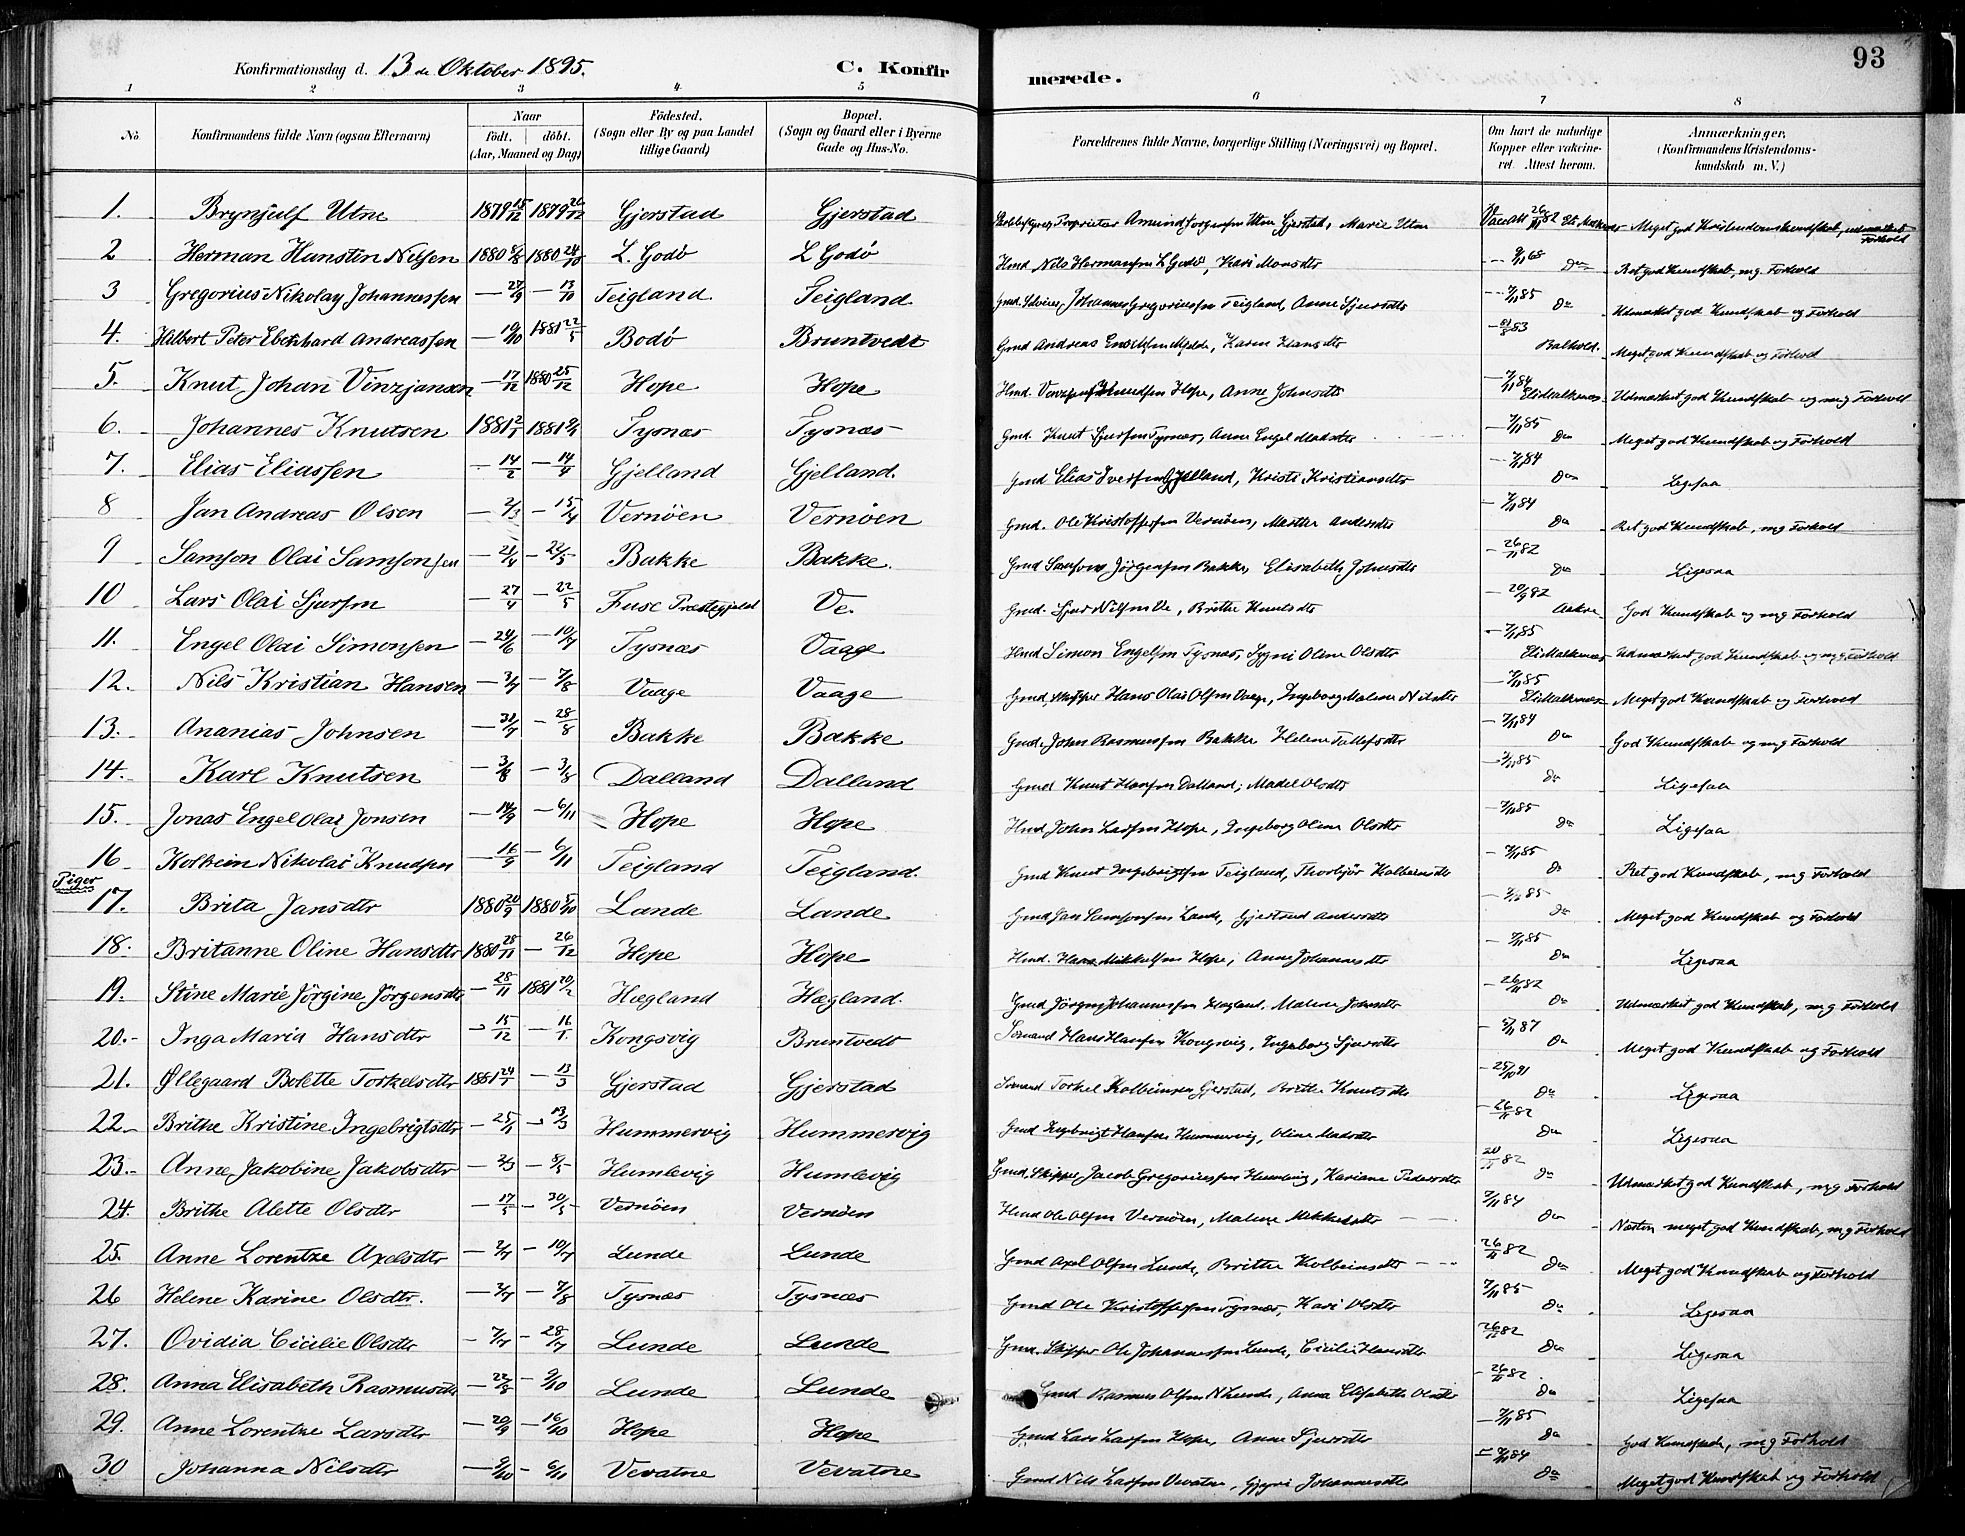 93
Konfirmationsdag d. 13 de Oktober 1895.
C. Konfirmerede.
1 2 3 4 5 6 7 8
No. Konfirmandens fulde Navn (ogsaa Efternavn) Naar født. døbt. (Aar, Maaned og Dag) Fødested. (Sogn eller By og paa Landet tillige Gaard) Bopæl. (Sogn og Gaard eller i Byerne Gade og Hus-No. Forældrenes fulde Navne, borgerlige Stilling (Næringsvei) og Bopæl. Om havt de naturlige Kopper eller vakcineret. Attest herom. Anmærkninger, (Konfirmandens Kristendomskundskab m. V.)
1. Brynjulf Utne 1879 15/12 1879 26/12 Gjerstad Gjerstad Proprietær Amund Jørgensen Utne Gjerstad, Marie Utne 26/11 82 Meget god Kristendomskundskab, udmærket Forhold
2 Herman Hunstin Nilsen 1880 8/8 1880 24/10 L. Godø L Godø Hmd Nils Hermansen L Godø, Kari Monsdtr Do Ret god Kundskab, mg Forhold
3 Gregorius Nikolay Johannessen — 27/9 — 13/10 Teigland Teigland Gmd Johannes Gregoriussen Teigland, Anne Sjursdtr 7/11 85 Do Udmærket god Kundskab og Forhold
4. Hilbert Peter Ebenhard Andreassen — 10/10 1881 22/5 Bodø Bruntvedt Gmd Andreas Karen Hansdtr 83 Meget god Kundskab og Forhold
5. Knut Johan Vinzjansen — 17/12 1880 25/12 Hope Hope Hmd. Knudsen Hope, Anne Johnsdtr 7/11 84 Udmærket god Kundskab og mg Forhold
6. Johannes Knutsen 1881 2/1 1881 9/1 Tysnæs Tysnæs Gmd. Knut Sjursen Tysnæs, Anne Engel Madsdtr 7/11 85 Do Meget god Kundskab og Forhold
7. Elias Eliassen — 14/2 — 14/4 Gjelland Gjelland. Gmd Elias Iversen Gjelland, Kristi Kristiansdtr 7/11 84 Do Ligesaa
8 Jan Andreas Olsen — 2/3 — 15/4 Vernøen Vernøen Gmd. Ole Kristoffersen Vernøen, Marthe Andersdtr 7/11 84 Do Ret god Kundskab, mg Forhold
9 Samson Olai Samsonsen — 21/4 — 22/5 Bakke Bakke. Gmd Samson Jørgensen Bakke, Elisabeth Johnsdtr 26/11 82 Do Ligesaa
10 Lars Olai Sjursen — 27/4 — 22/5 Fuse Præstegjeld Ve. Gmd. Sjur Nilsen Ve, Brithe Knutsdtr 20/9 82 God Kundskab og mg Forhold
11. Engel Olai Simonsen — 24/6 — 10/7 Tysnæs Vaage Hmd Simon Engelsen Tysnæs, Oline Olsdtr 7/11 85 Udmærket god Kundskab og mg Forhold
12. Nils Kristian Hansen — 3/7 — 7/8 Vaage Vaage Gmd, Skipper Hans Olai Olsen Vaage, Ingeborg Malene Nilsdtr 7/11 85 Meget god Kundskab og Forhold
13. Ananias Johnsen — 31/7 — 28/8 Bakke Bakke Gmd. John Rasmussen Bakke Helene Tollefsdtr 7/11 84 Do God Kundskab og mg Forhold
14. Karl Knutsen — 3/8 — 3/8 Dalland Dalland Gmd Knut Hansen Dalland, Madel Olsdtr 7/11 85 Do Ligesaa
15. Jonas Engel Olai Jonsen — 14/9 — 6/11 Hope Hope Hmd John Larsen Hope, Ingeborg Oline Olsdtr 7/11 85 Do Ligesaa
16 Kolbein Nikolai Knudsen — 16/9 — 6/11 Teigland Teigland. Gmd Knut Ingebrigtsen Teigland, Thorbjør Kolbensdtr 7/11 85 Do Ret god Kundskab, mg Forhold
Piger
17. Brita Jansdtr 1880 20/9 1880 5/10 Lunde Lunde Gmd Jan Samsonsen Lunde, Gjertrud Andersdtr 85 Do Meget god Kundskab og Forhold
18. Britanne Oline Hansdtr 1880 28/11 — 26/12 Hope Hope Hmd. Hans Mikkelsen Hope, Anne Johannesdtr 7/11 85 Do Ligesaa
19. Stine Marie Jørgine Jørgensdtr — 28/11 1881 20/2 Hægland Hægland. Gmd Jørgen Johannessen Hægland, Malene Johnsdtr 26/11 82 Do Udmærket god Kundskab, mg Forhold
20. Inga Maria Hansdtr — 15/12 — 16/1. Kongsvig Bruntvedt Sømand Hans Hansen Kongsvig, Ingeborg Sjursdtr 87 Do Meget god Kundskab og Forhold
21. Øllegaard Bolette Torkelsdtr 1881 24/1 — 13/3 Gjerstad Gjerstad Sømand Torkel Kolbeinsen Gjerstad, Brithe Knutsdtr 25/10 91 Do Ligesaa
22. Brithe Kristine Ingebrigtsdtr — 25/1 — 13/3 Hummervig Hummervig Gmd Ingebrigt Hansen Hummervig, Oline Madsdtr 26/11 82 Do Ligesaa
23. Anne Jakobine Jakobsdtr — 2/3 — 8/5 Humlevig Humlevig Gmd, Skipper Jacob Gregoriussen Humlevig, Kariane Pedersdtr 82 Do Udmærket god Kundskab, mg Forhold
24. Brithe Alette Olsdtr — 17/5 — 30/5 Vernøen Vernøen Hmd Ole Olsen Vernøen, Malene Mikkelsdtr 7/11 84 Do Næsten meget god Kundskab, mg Forhold
25. Anne Lorentze Axelsdtr — 2/7 — 10/7 Lunde Lunde Gmd Axel Olsen Lunde, Brithe Kolbeinsdtr 26/11 82 Do Meget god Kundskab og Forhold
26 Helene Karine Olsdtr. — 3/7 — 7/8 Tysnæs Tysnæs Gmd Ole Kristoffersen Tysnæs, Kari Olsdtr 7/11 85 Do Ligesaa
27. Ovidia Cicilie Olsdtr — 7/7 — 28/7 Lunde Lunde Gmd. Skipper Ole Johannessen Lunde, Cicilie Hansdtr 26/11 82 Do Ligesaa
28. Anna Elisabeth Rasmusdtr — 22/8 — 9/10 Lunde Lunde Gmd Rasmus Olsen N Lunde, Anna Elisabeth Olsdtr 26/11 82 Do Ligesaa
29. Anne Lorentze Larsdtr — 20/9 — 16/10 Hope Hope Gmd Lars Larsen Hope, Anne Sjursdtr 7/11 85 Do God Kundskab, mg Forhold
30 Johanna Nilsdtr — 9/10 — 6/11 Vevatne Vevatne Gmd Nils Larsen Vevatne, Gjyri Johannesdtr 7/11 84 Do Meget god Kundskab og Forhold